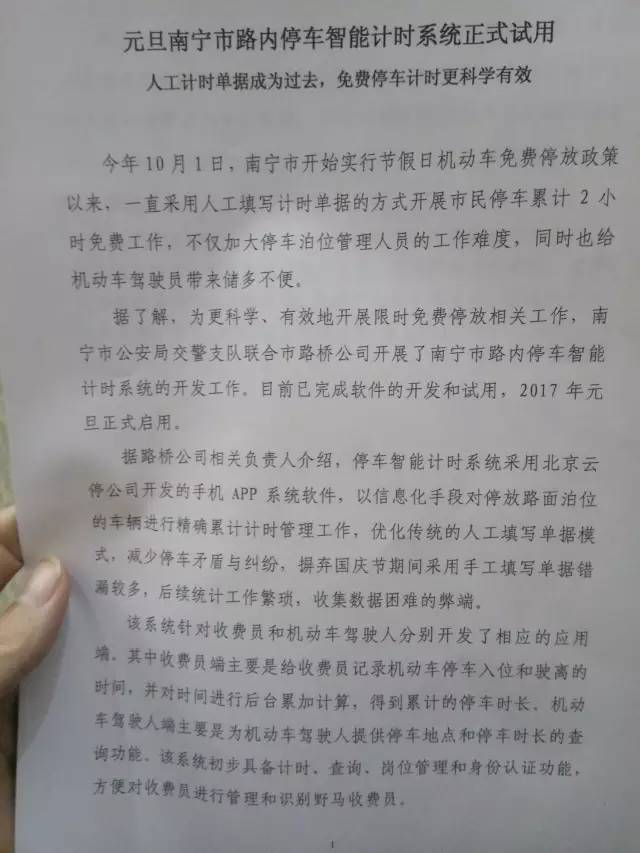 元旦南宁市路内停车智能计时系统正式试用
人工计时单据成为过去，免费停车计时更科学有效
今年10月1日，南宁市开始实行节假日机动车免费停放政策
以来，一直采用人工填写计时单据的方式开展市民停车累计 2 小
时免费工作，不仅加大停车泊位管理人员的工作难度，同时也给
机动车驾驶员带来储多不便。
据了解，为更科学、有效地开展限时免费停放相关工作，南
宁市公安局交警支队联合市路桥公司开展了南宁市路内停车智能
计时系统的开发工作。目前已完成软件的开发和试用，2017 年元
旦正式启用。
据路桥公司相关负责人介绍，停车智能计时系统采用北京云
停公司开发的手机 APP 系统软件，以信息化手段对停放路面泊位
的车辆进行精确累计计时管理工作，优化传统的人工填写单据模
式，减少停车矛盾与纠纷，摒弃国庆节期间采用手工填写单据错
漏较多，后续统计工作繁琐，收集数据困难的弊端。
该系统针对收费员和机动车驾驶人分别开发了相应的应用
端。其中收费员端主要是给收费员记录机动车停车入位和驶离的
时间，并对时间进行后台累加计算，得到累计的停车时长。机动
车驾驶人端主要是为机动车驾驶人提供停车地点和停车时长的查
询功能。该系统初步具备计时、查询、岗位管理和身份认证功能，
方便对收费员进行管理和识别野马收费员。
1